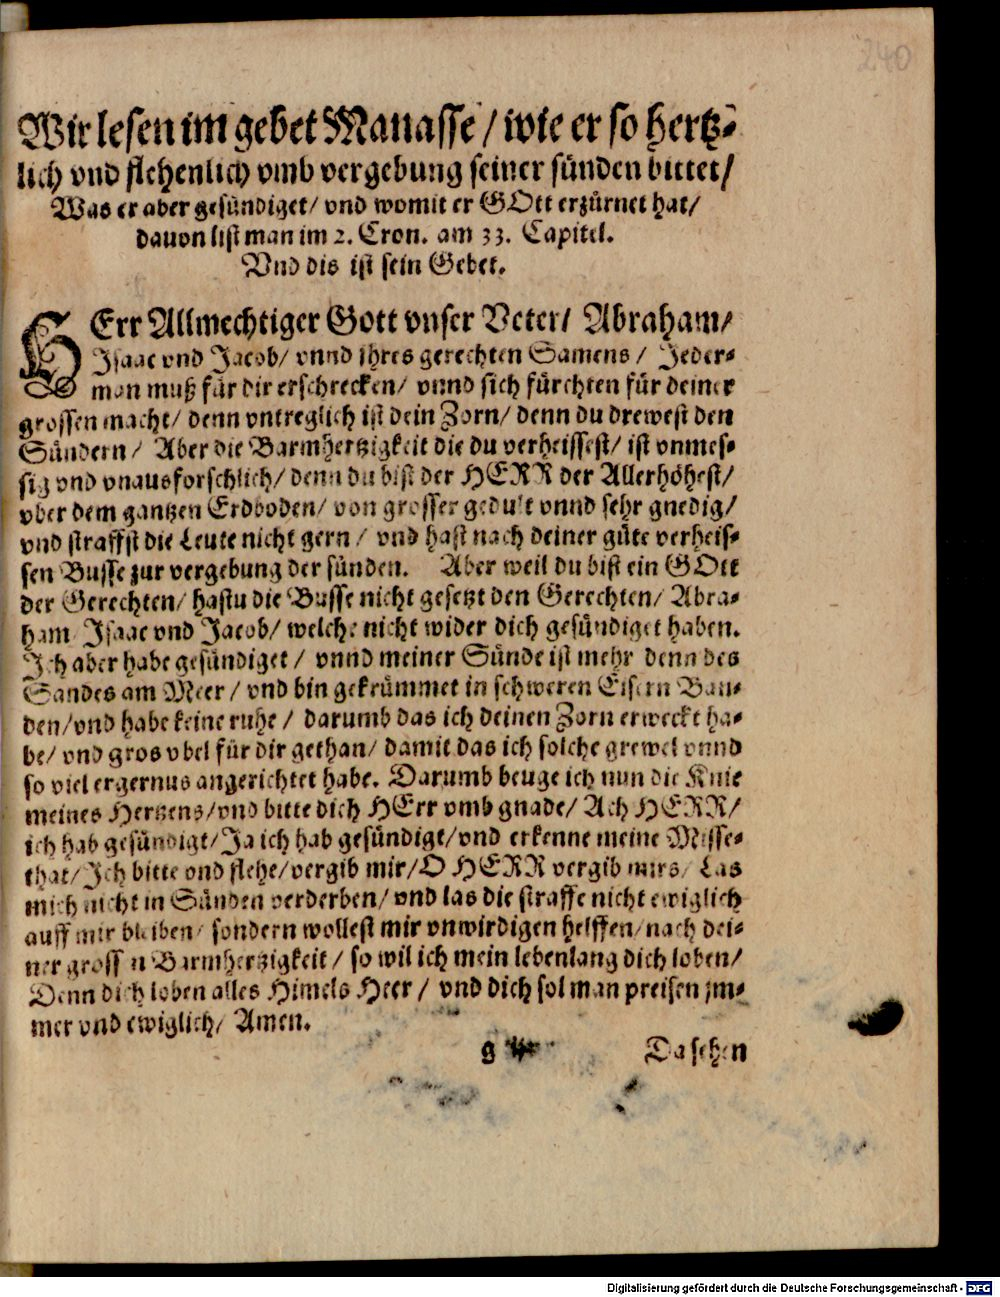 240
Wir lesen im gebet Manasse / wie er so hertz-
lich vnd flehenlich vmb vergebung seiner sünden bittet/
Was er aber gesündiget/ vnd womit er GOtt erzürnet hat/
dauon list man im 2. Cron. am 33. Capitel.
Vnd dis ist sein Gebet.
HErr Allmechtiger Gott vnser Veter/ Abraham/
Isaac vnd Jacob/ vnnd ihres gerechten Samens / Jeder-
man muß für dir erschrecken/ vnnd sich fürchten für deiner
grossen macht/ denn vntreglich ist dein Zorn/ denn du drewest den
Sündern / Aber die Barmhertzigkeit die du verheissest/ ist vnmes-
sig vnd vnausforschlich/ denn du bist der HERR der Allerhöhest/
vber dem gantzen Erdboden/ von grosser gedult vnnd sehr gnedig/
vnd straffst die Leute nicht gern / vnd hast nach deiner güte verheis-
sen Busse zur vergebung der sünden. Aber weil du bist ein GOtt
der Gerechten/ hastu die Busse nicht gesetzt den Gerechten/ Abra-
ham Isaac vnd Jacob/ welche nicht wider dich gesündiget haben.
Ich aber habe gesündiget / vnnd meiner Sünde ist mehr denn des
Sandes am Meer / vnd bin gekrümmet in schweren Eisern Ban-
den/vnd habe keine ruhe / darumb das ich deinen Zorn erweckt ha-
be/ vnd gros vbel für dir gethan/ damit das ich solche grewel vnnd
so viel ergernus angerichtet habe. Darumb beuge ich nun die Knie
meines Hertzens/vnd bitte dich HErr vmb gnade/ Ach HERR/
ich hab gesündigt/Ja ich hab gesündigt/vnd erkenne meine Misse-
that/Ich bitte vnd flehe/vergib mir/O HERR vergib mirs/ Las
mich nicht in Sünden verderben/ vnd las die straffe nicht ewiglich
auff mir bleiben/ sondern wollest mir vnwirdigen helffen/nach dei-
ner grossen Barmhertzigkeit / so wil ich mein lebenlang dich loben/
Denn dich loben alles Himels Heer / vnd dich sol man preisen im-
mer vnd ewiglich/ Amen.
g Daschen
Digitalisierung gefördert durch die Deutsche Forschungsgemeinschaft - DFG